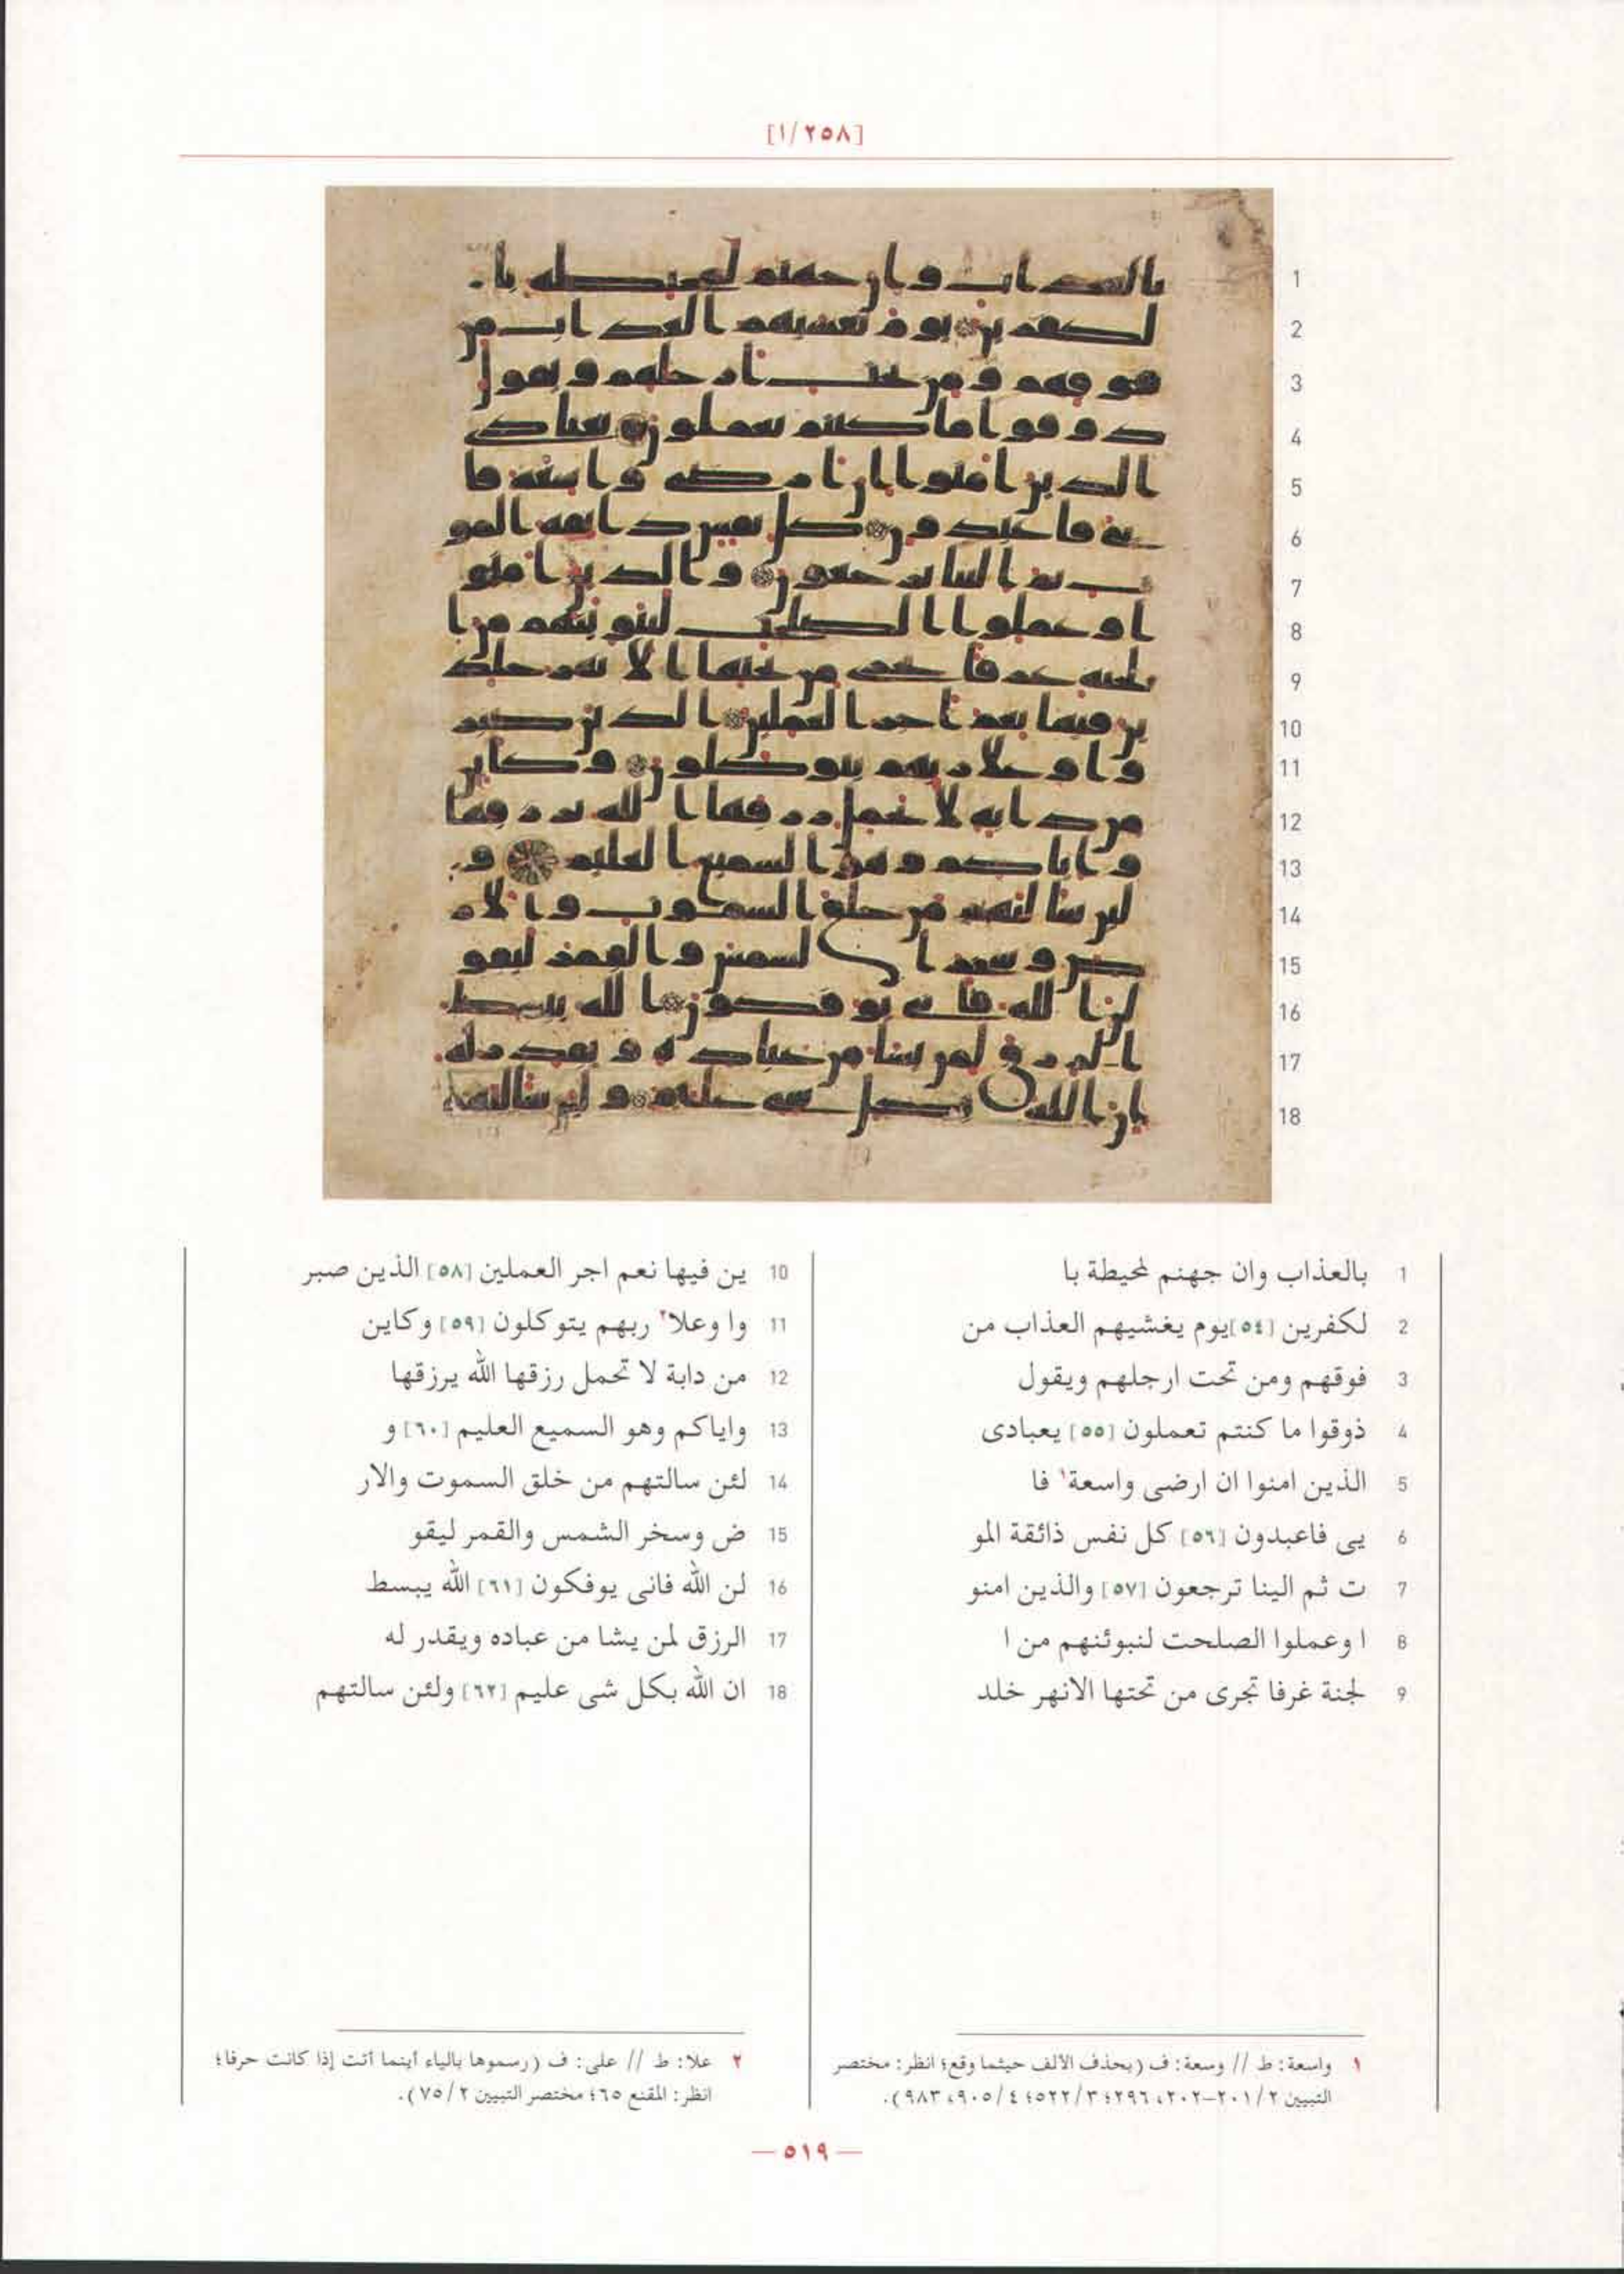 [١/٢٥٨]
1 بالعذاب وان جهنم لمحيطة با
2 لكفرين [٥٤]يوم يغشيهم العذاب من
3 فوقهم ومن تحت ارجلهم ويقول
4 ذوقوا ما كنتم تعملون [٥٥] يعبادى
5 الذين امنوا ان ارضى واسعة١ فا
6 يى فاعبدون [٥٦] كل نفس ذائقة المو
7 ت ثم الينا ترجعون [٥٧] والذين امنو
8 ا وعملوا الصلحت لنبوئنهم من ا
9 لجنة غرفا تجرى من تحتها الانهر خلد
10 ين فيها نعم اجر العملين [٥٨] الذين صبر
11 وا وعلا٢ ربهم يتوكلون [٥٩] وكاين
12 من دابة لا تحمل رزقها الله يرزقها
13 واياكم وهو السميع العليم [٦٠] و
14 لئن سالتهم من خلق السموت والار
15 ض وسخر الشمس والقمر ليقو
16 لن الله فانى يوفكون [٦١] الله يبسط
17 الرزق لمن يشا من عباده ويقدر له
18 ان الله بكل شى عليم [٦٢] ولئن سالتهم
١ واسعة: ط // وسعة: ف (بحذف الألف حيثما وقع؛ انظر: مختصر
التبيين ٢/ ٢٠١-٢٠٢، ٢٩٦؛ ٣/ ٥٢٢؛ ٤/ ٩٠٥، ٩٨٣).
٢ علا: ط // على: ف (رسموها بالياء أينما أتت إذا كانت حرفا؛
انظر: المقنع ٦٥؛ مختصر التبيين ٢/ ٧٥).
— ٥١٩ —